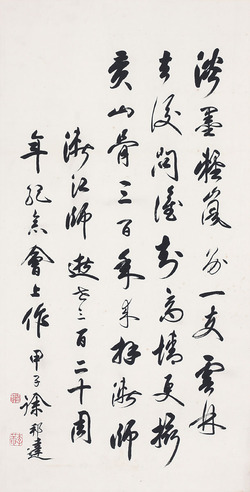 淡墨嵐一支雲林
去後問誰知高情更攝
黃山骨三百年來拜漸師
漸江師逝世三百二十周
年紀念會上作 甲子徐邦達